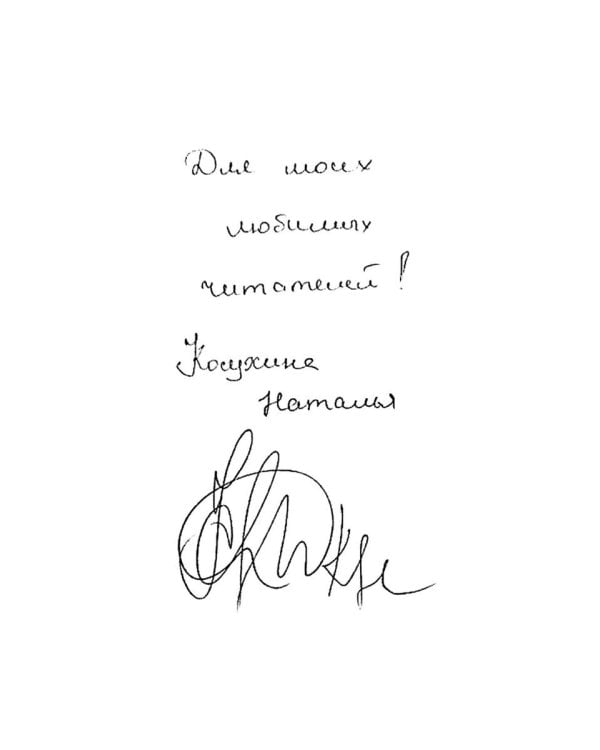 Для моих
любимых
читателей!
Косухина
Наталья